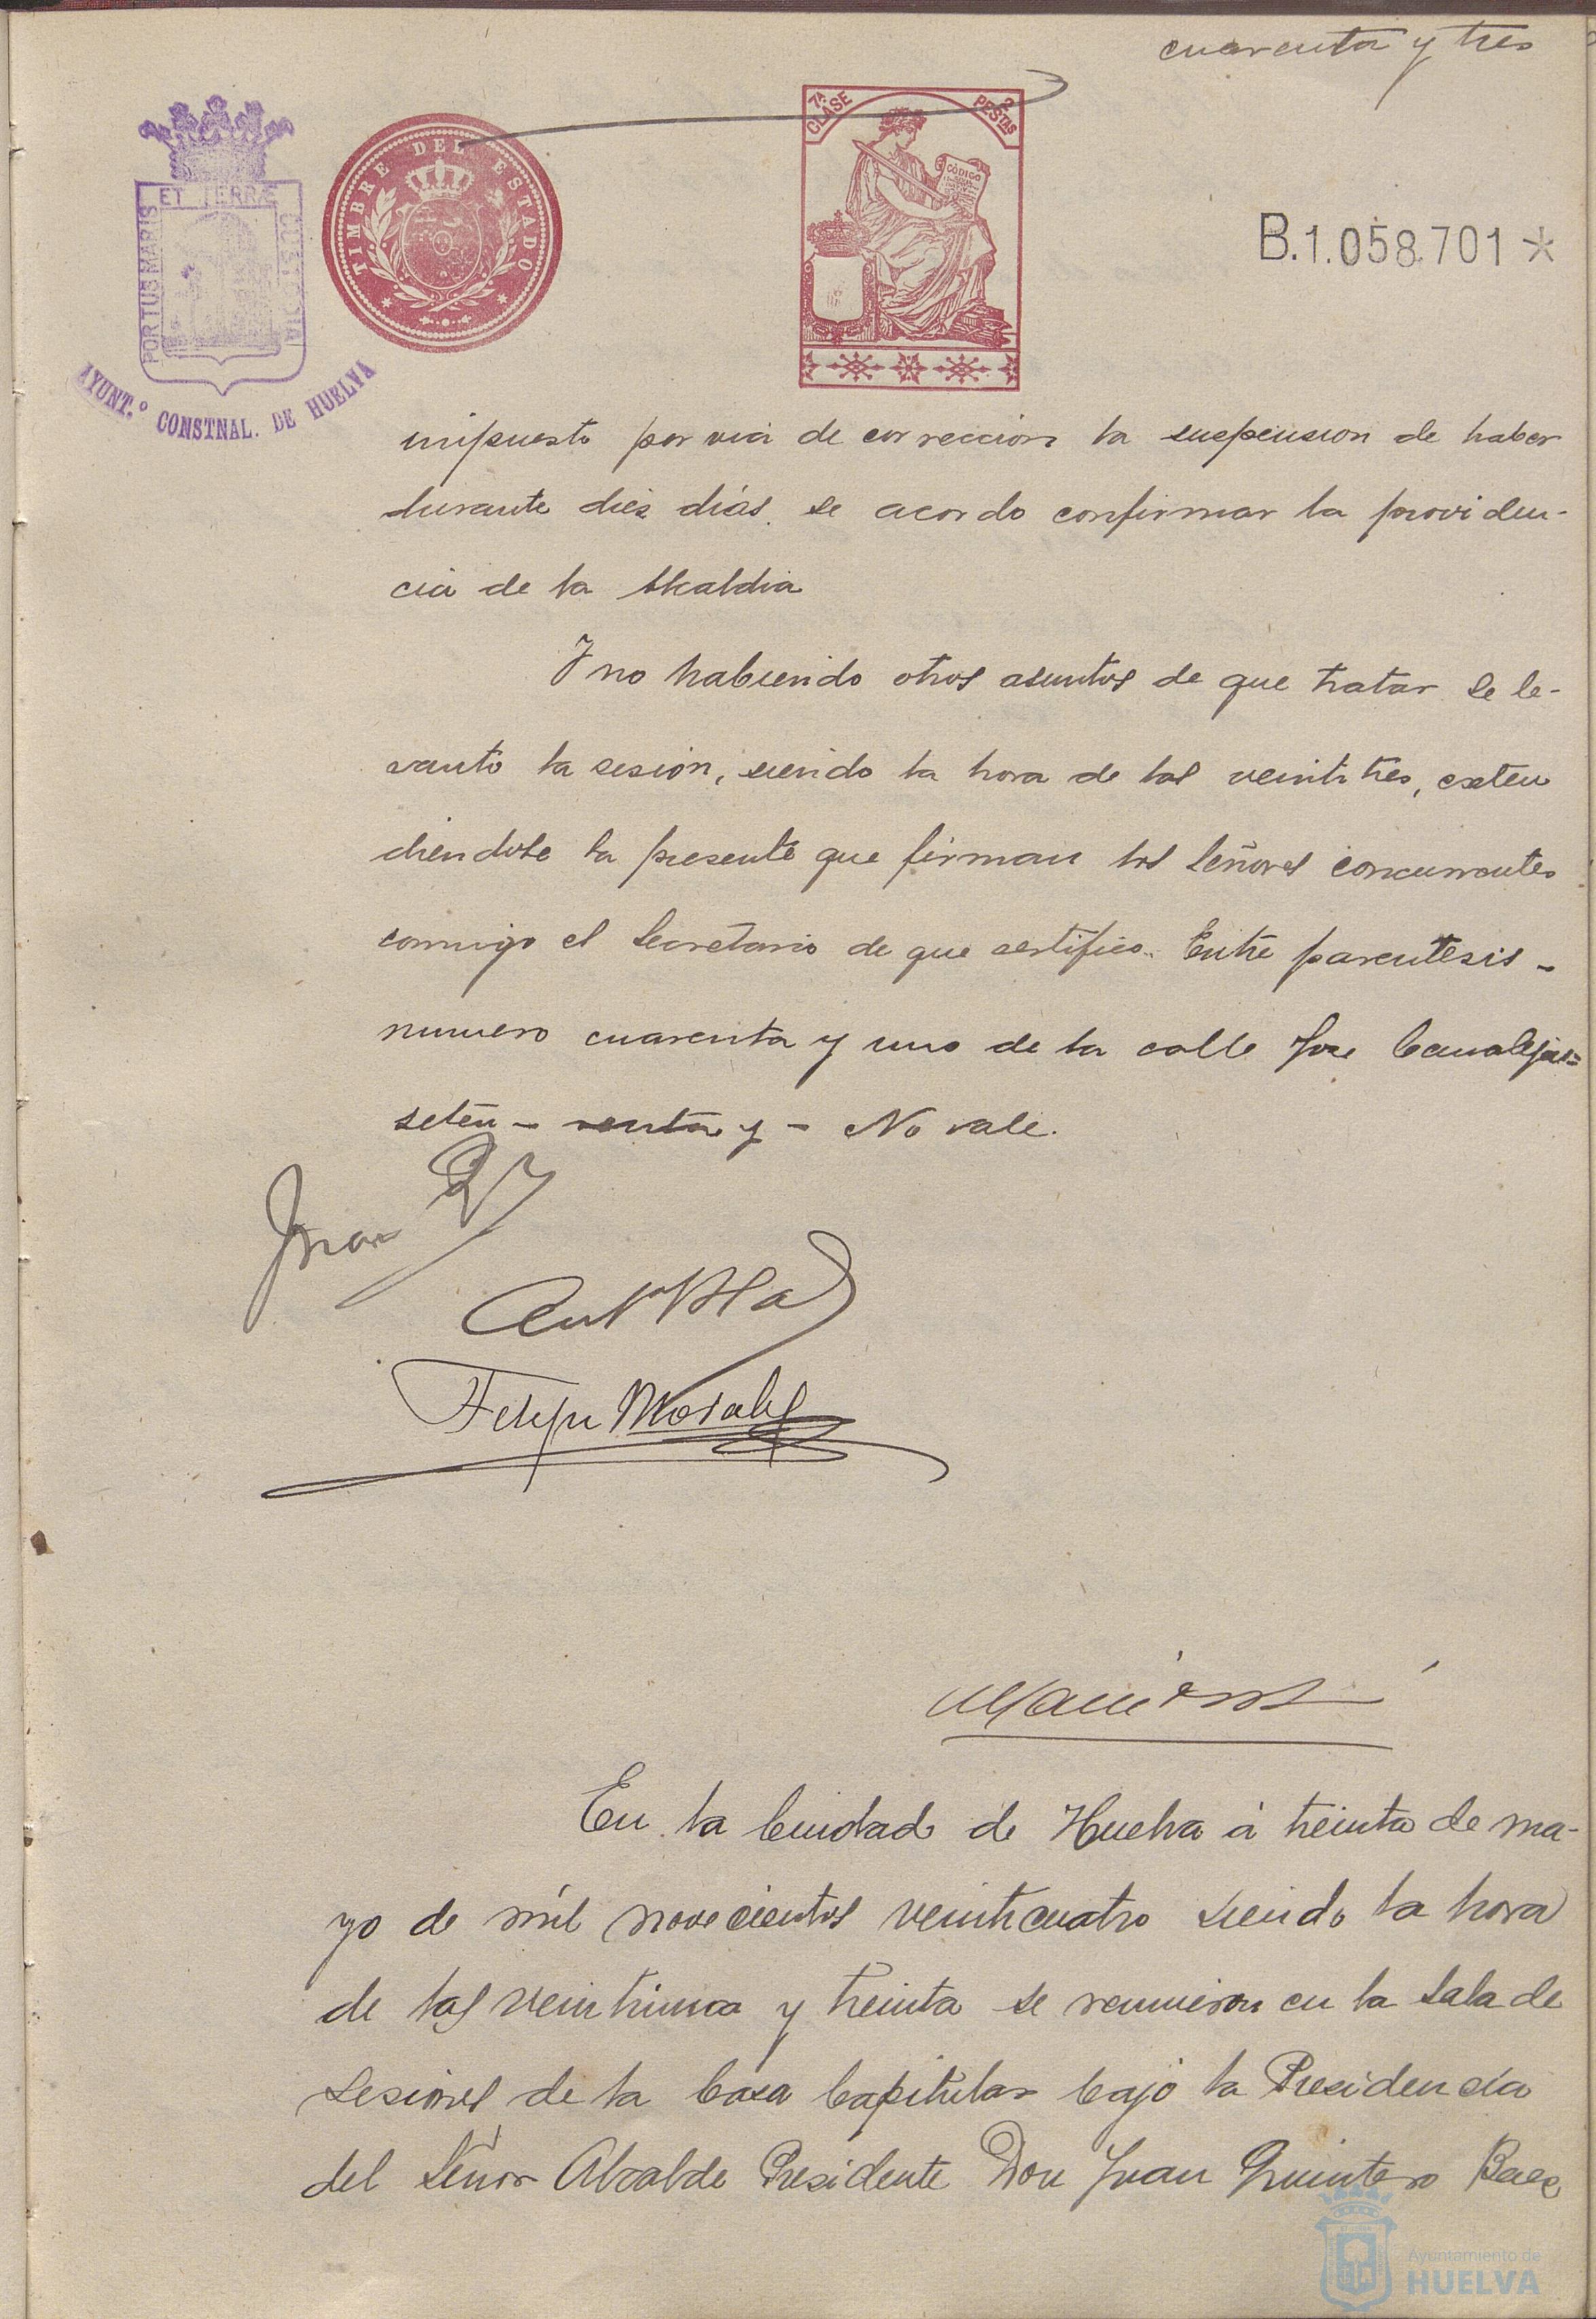 cuarenta y tres
ET TERRÆ
PORTUS MARIS
AYUNT.º CONSTNAL. DE HUELVA
TIMBRE DEL ESTADO
7ª CLASE
2 PESTAS
CÓDIGO
B.1.058.701 *
impuesto por via de correccion la suspension de haber
durante diez días. se acordo confirmar la providen-
cia de la Alcaldia
Y no habiendo otros asuntos de que tratar se le-
vantó la sesión, siendo la hora de las veintitres, exten
diendose la presente que firman los Señores concurrentes
conmigo el Secretario de que certifico. Entre parentesis -
numero cuarenta y uno de la calle Jose Canalejas=
seten - venta y - No vale.
Juan
Felipe Morales
En la Ciudad de Huelva á treinta de ma-
yo de mil novecientos veinticuatro siendo la hora
de las veintiuna y treinta se reunieron en la Sala de
Sesiones de la Casa Capitular bajo la Presidencia
del Señor Alcalde Presidente Don Juan Quintero Baez
Ayuntamiento de
HUELVA